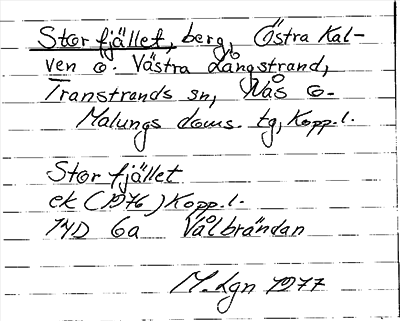 Storfjället, berg, Östra Kal-
ven o. Västra Långstrand,
Transtrands sn, Nås o.
Malungs doms. tg, Kopp.l.
Storfjället
ek (1976) Kopp.l.
14D 6a Vålbrändan
M.Lgn 1977